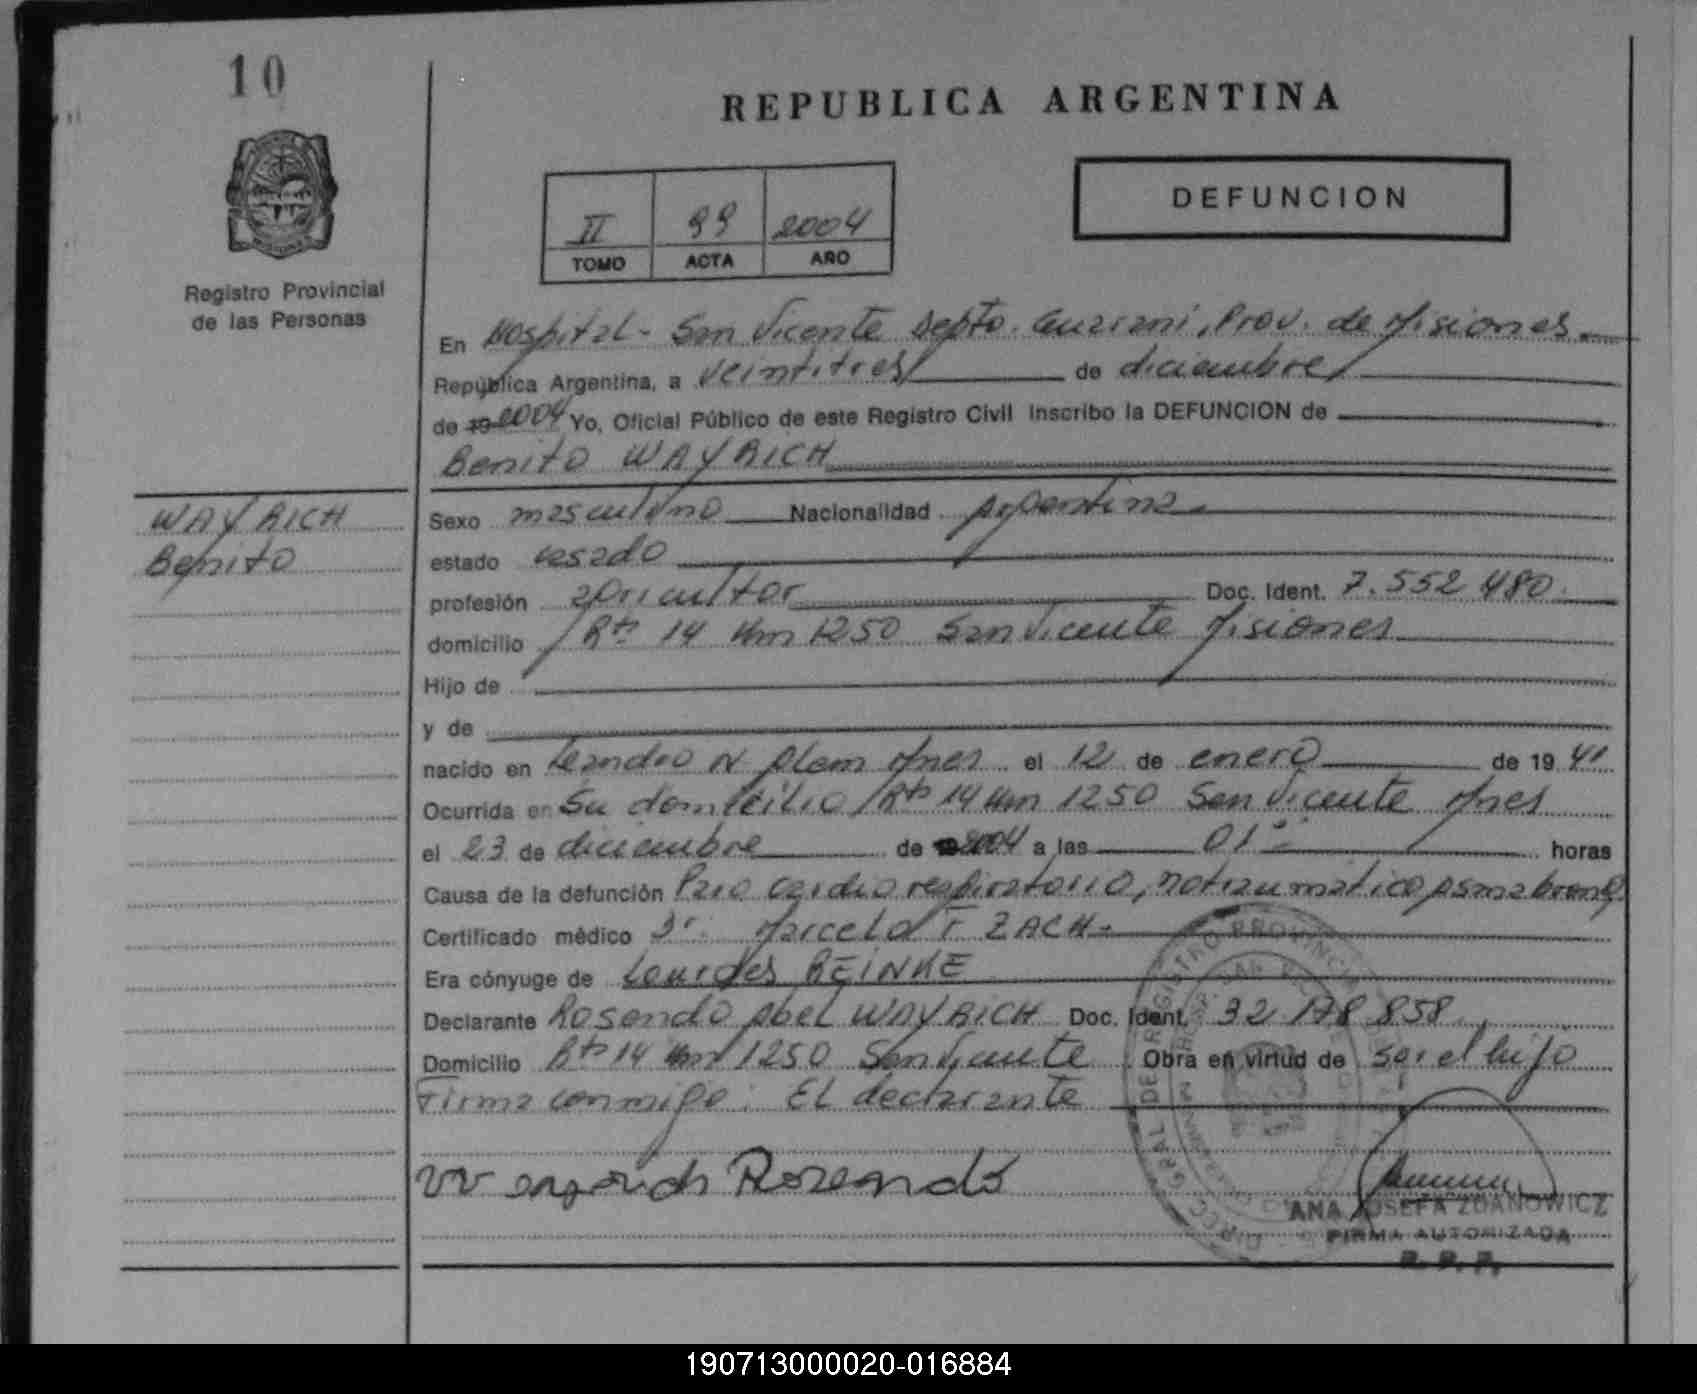 10
REPUBLICA ARGENTINA
DEFUNCION
II 99 2004
TOMO ACTA AÑO
Registro Provincial
de las Personas
En Hospital - San Vicente Depto. Guarani, Prov. de Misiones.
República Argentina, a veintitres de diciembre
de 19 2004 Yo, Oficial Público de este Registro Civil Inscribo la DEFUNCION de
Benito WAYRICH
WAYRICH
Benito
Sexo masculino Nacionalidad Argentina
estado casado
profesión agricultor Doc. Ident. 7.552 480.
domicilio Rta 14 Km 1250 San Vicente Misiones
Hijo de
y de
nacido en Leandro N Alem Mnes el 12 de enero de 19 41
Ocurrida en Su domicilio Rta 14 Km 1250 San Vicente Mnes
el 23 de diciembre de 2004 a las 01 horas
Causa de la defunción Paro cardio respiratorio, no traumatico, asma bronq
Certificado médico Dr. Marcelo F. ZACH-
Era cónyuge de Lourdes REINKE
Declarante Rosendo Abel WAYRICH Doc. Ident. 32 178 858
Domicilio Rta 14 Km 1250 San Vicente Obra en virtud de ser el hijo
Firma conmigo: El declarante
Rosendo
ANA JOSEFA ZDANOWICZ
FIRMA AUTORIZADA
R. P. P.
190713000020-016884